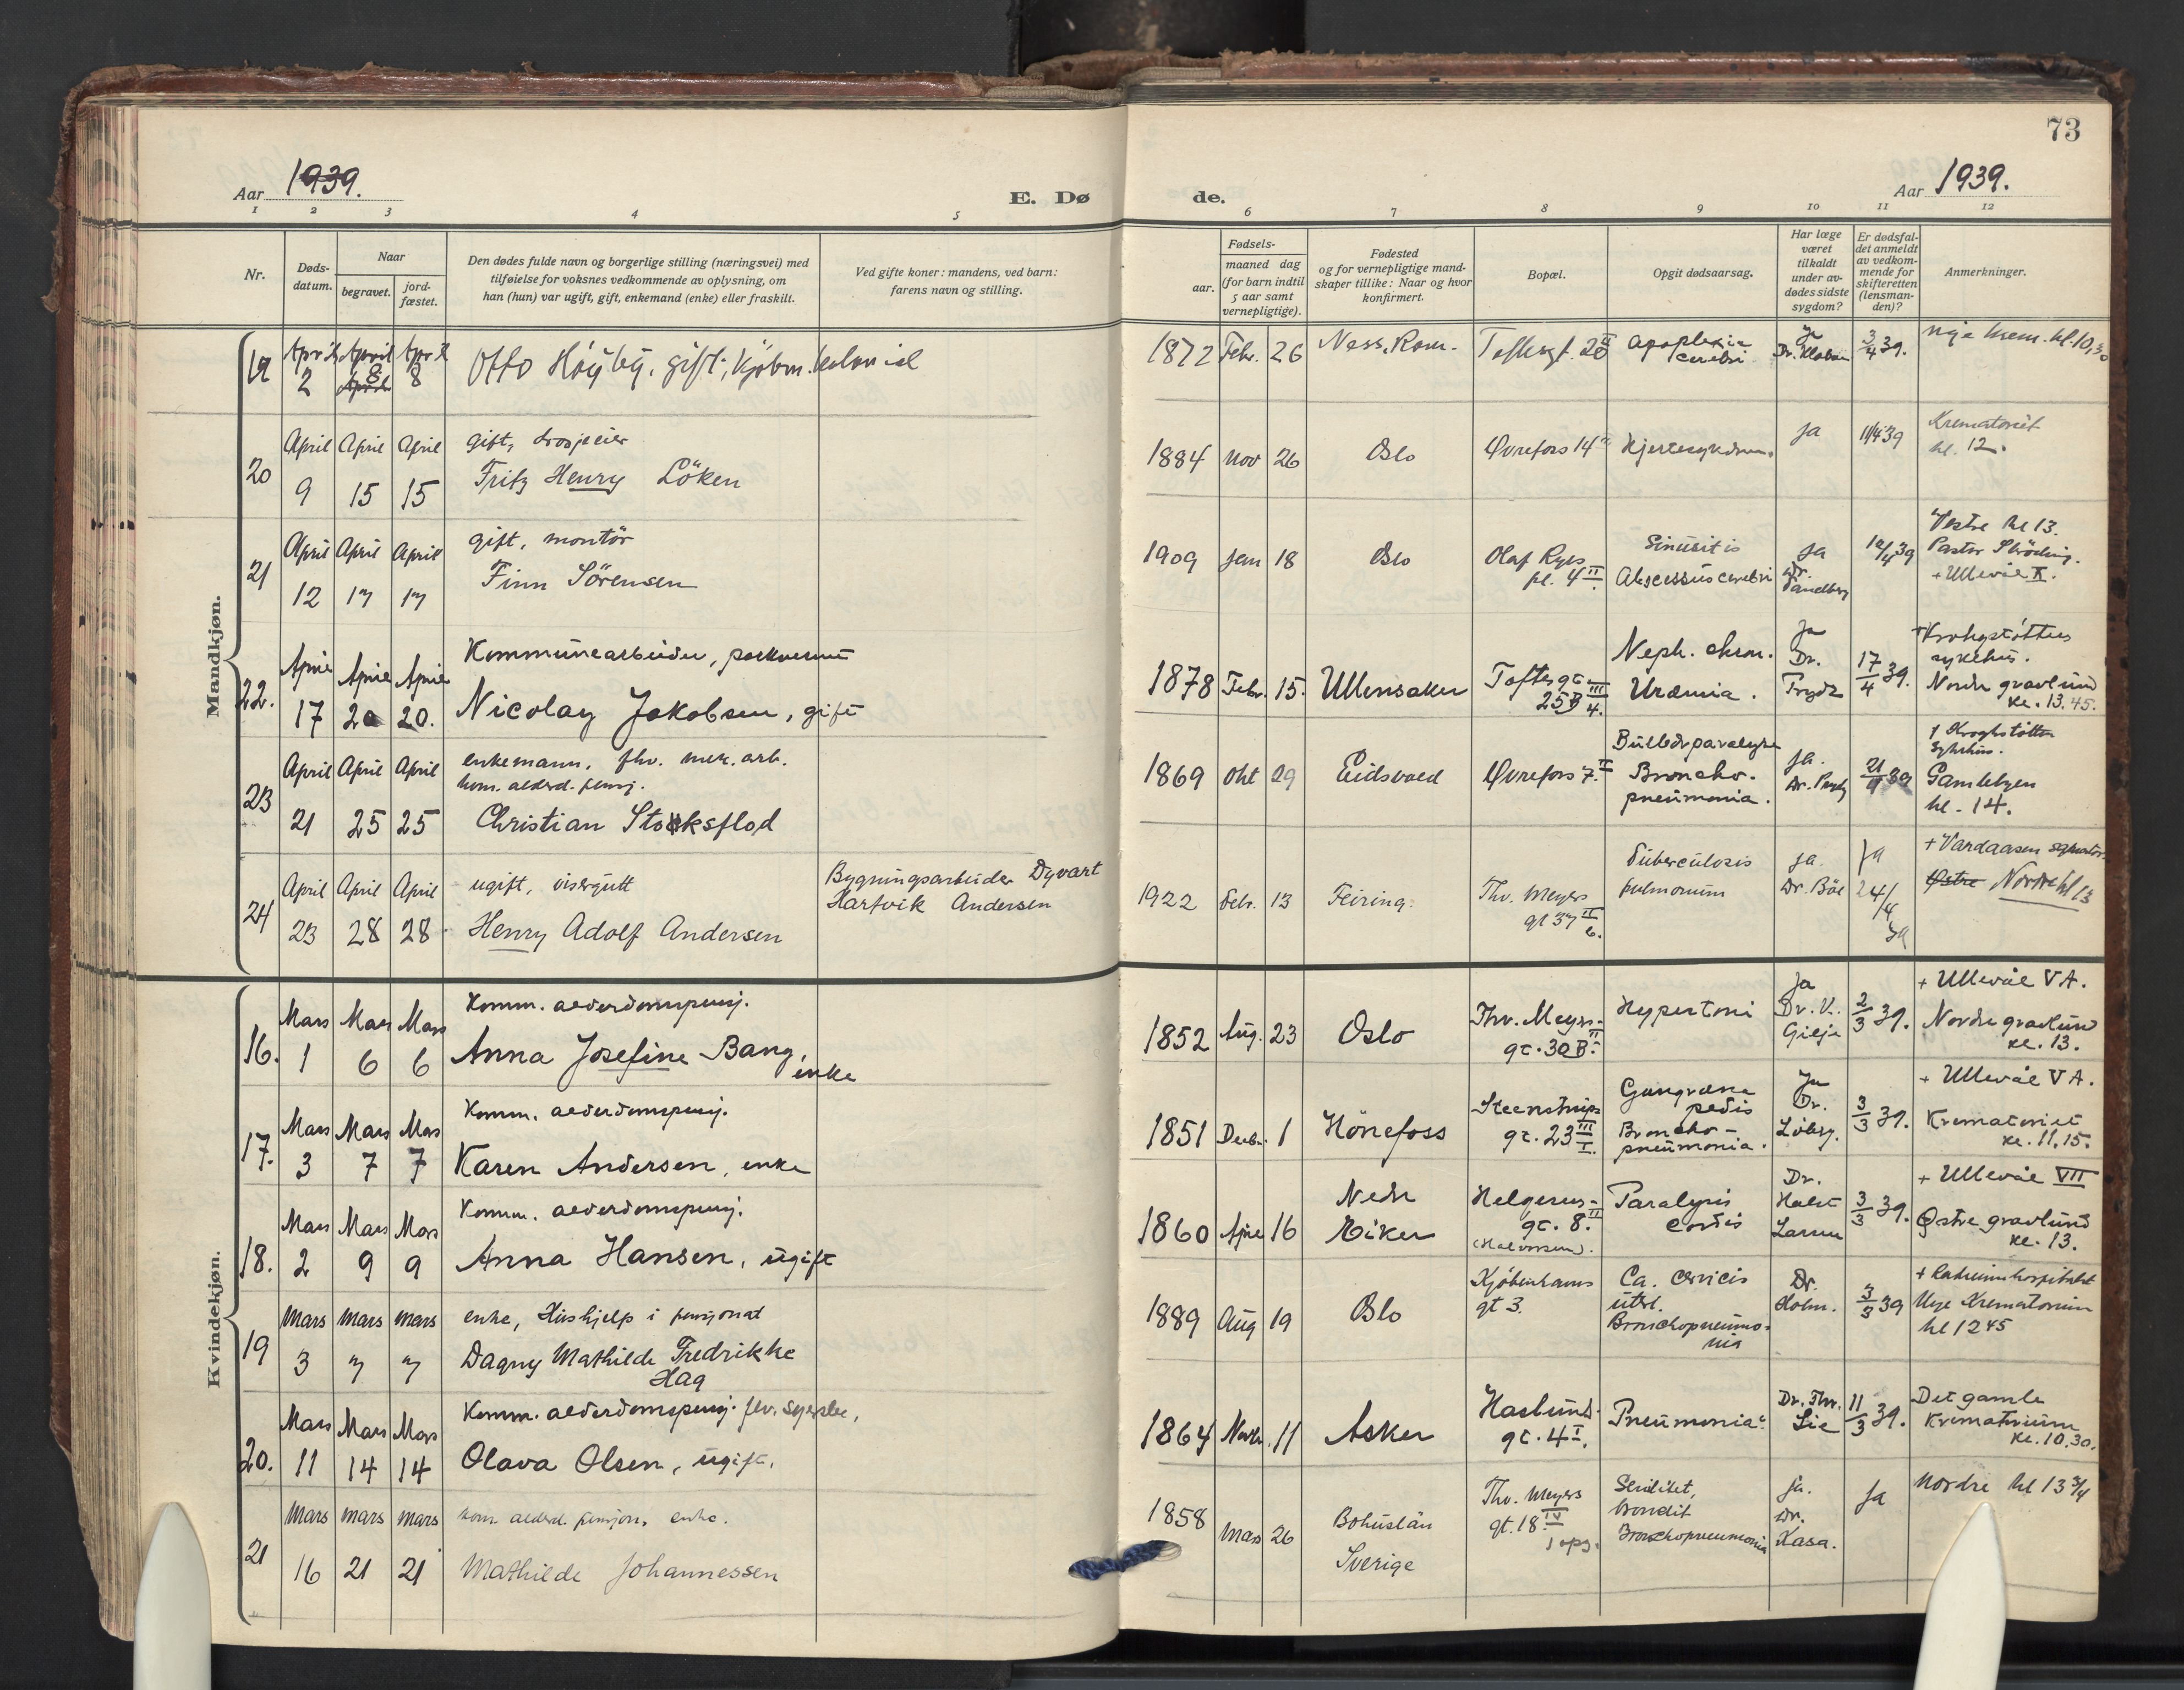 73
Aar 1939.
E. Dø
de.
Aar 1939.
1 2 3 4 5 6 7 8 9 10 11 12
Nr.
Døds-
datum.
Naar
begravet.
jord-
fæstet.
Den dødes fulde navn og borgerlige stilling (næringsvei) med
tilføielse for voksnes vedkommende av oplysning, om
han (hun) var ugift, gift, enkemand (enke) eller fraskilt.
Ved gifte koner: mandens, ved barn:
farens navn og stilling.
Fødsels-
aar.
maaned dag
(for barn indtil
5 aar samt
vernepligtige).
Fødested
og for vernepligtige mand-
skaper tillike: Naar og hvor
konfirmert.
Bopæl.
Opgit dødsaarsag.
Har læge
været
tilkaldt
under av-
dødes sidste
sygdom?
Er dødsfal-
det anmeldt
av vedkom-
mende for
skifteretten
(lensman-
den)?
Anmerkninger.
Mandkjøn.
19 April 2 April 8 April 8
Otto Höyby, gift, kjøbm. kolonial
1872 Febr. 26 Ness, Rom. Toftesgt. 28 II
apoplexia
cerebri
Ja
Dr.
3/4 39.
nye krem. kl. 10,30
20 April 9 April 15 April 15
gift, drosjeeier
Fritz Henry Löken
1884 Nov 26 Oslo Øvrefoss 14 Hjertesykdom. Ja 11/4 39
Krematoriet
kl. 12.
21 April 12 April 17 April 17
gift, montör
Finn Sörensen
1909 Jan 18 Oslo
Olaf Ryes
pl. 4 II
Sinusitis
Abscessus cerebri
Ja
Dr.
Sandberg
Vestre kl 13.
Pastor
+ Ullevål X.
22. April 17 April 20 April 20.
Kommunearbeider, parkvesenet
Nicolay Jakobsen, gift
1878 Febr. 15. Ullensaker
Toftesgt.
25B III
4.
Neph. chron.
Uræmia.
Ja
Dr.
Trydz
17/4 39.
+ Krohgstöttens
sykehus.
Nordre gravlund
kl. 13.45.
23 April 21 April 25 April 25
enkemann, fhv. mek. arb.
kom. alderd. pensj.
Christian Stoksflod
1869 Okt 29 Eidsvold Øvrefoss 7. II
Bulbærparalyse
Broncho-
pneumonia.
Ja.
Dr.
21/4 39
+ Kroghstötten
Sykehus.
Gamlebyen
kl. 14.
24 April 23 April 28 April 28
ugift, visergutt
Henry Adolf Andersen
Bygningsarbeider Dyvart
Hartvik Andersen
1922 Febr. 13 Feiring.
Thv. Meyers
gt 37 II
6.
Tuberculosis
pulmonum
Ja.
Dr. Böe
Ja
24/4
39
+ Vardaasen
Østre Nordre kl 13
Kvindekjøn.
16. Mars 1 Mars 6 Mars 6
Komm. alderdomspensj.
Anna Josefine Bang,
enke
1852 Aug. 23 Oslo
Thv. Meyers
gt. 30 B. II
Hypertoni
Ja
Dr. K.
Gilje
2/3 39.
+ Ullevål V A.
Nordre gravlund
kl. 13.
17. Mars 3 Mars 7 Mars 7
Komm. alderdomspensj.
Karen Andersen, enke
1851 Decbr. 1 Hönefoss
Steenstrups
gt. 23 III
I.
Gangræna
pedis
Broncho-
pneumonia.
Ja
Dr.
Löberg.
3/3 39.
+ Ullevål V A.
Krematoriet
kl. 11.15.
18. Mars 2 Mars 9 Mars 9
Komm. alderdomspensj.
Anna Hansen, ugift
1860 April 16
Nedre
Eiker
Helgesens-
gt. 8. II
(Halvorsen).
Paralysis
cordis
Dr.
Holst
Larsen
3/3 39.
+ Ullevål VII
Østre gravlund
kl. 13.
19 Mars 3 Mars 7 Mars 7
enke, Hushjelp i pensjonat
Dagny Mathilde Fredrikke
Hag
1889 Aug 19 Oslo
Kjöbenhavns
gt 3.
Ca. cervicis
uteri.
Bronchopneumo-
nia
Dr.
Holm.
3/3 39
+ Radiumhospitalet
Nye Krematorium
kl 12 45
20. Mars 11 Mars 14 Mars 14
Komm. alderdomspensj. fhv. syerske,
Olava Olsen, ugift.
1864 Novbr. 11 Asker
Haslunds
gt. 4 I.
Pneumonia
Dr. Thv.
Lie
11/3 39.
Det gamle
Krematorium
kl. 10.30.
21 Mars 16 Mars 21 Mars 21
kom. alderd. pensjon, enke.
Mathilde Johannessen
1858 Mars 26
Bohuslän
Sverige
Thv. Meyers
gt. 18 IV
1 opg.
Senilitet,
bronchit
Bronchopneumonia
Ja.
Dr.
Kasa.
Ja
Nordre kl 13 3/4